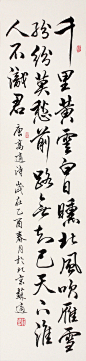 千里黃雲白日曛北風吹雁雪
紛紛莫愁前路無知己天下誰
人不識君 唐高適詩 歲在乙酉春月於北京蘇適